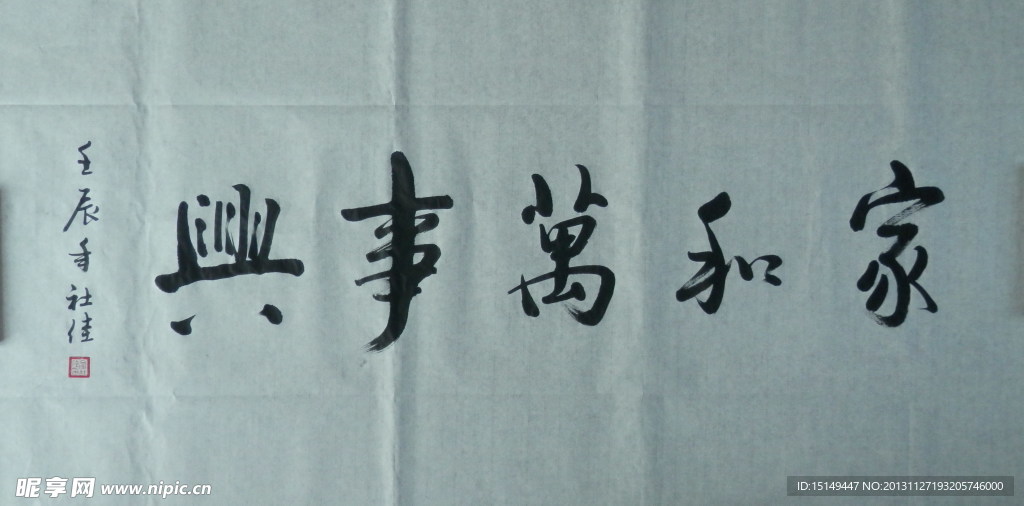 家和萬事興
壬辰年社佳
昵享网 www.nipic.cn
ID:15149447 NO:20131127193205746000